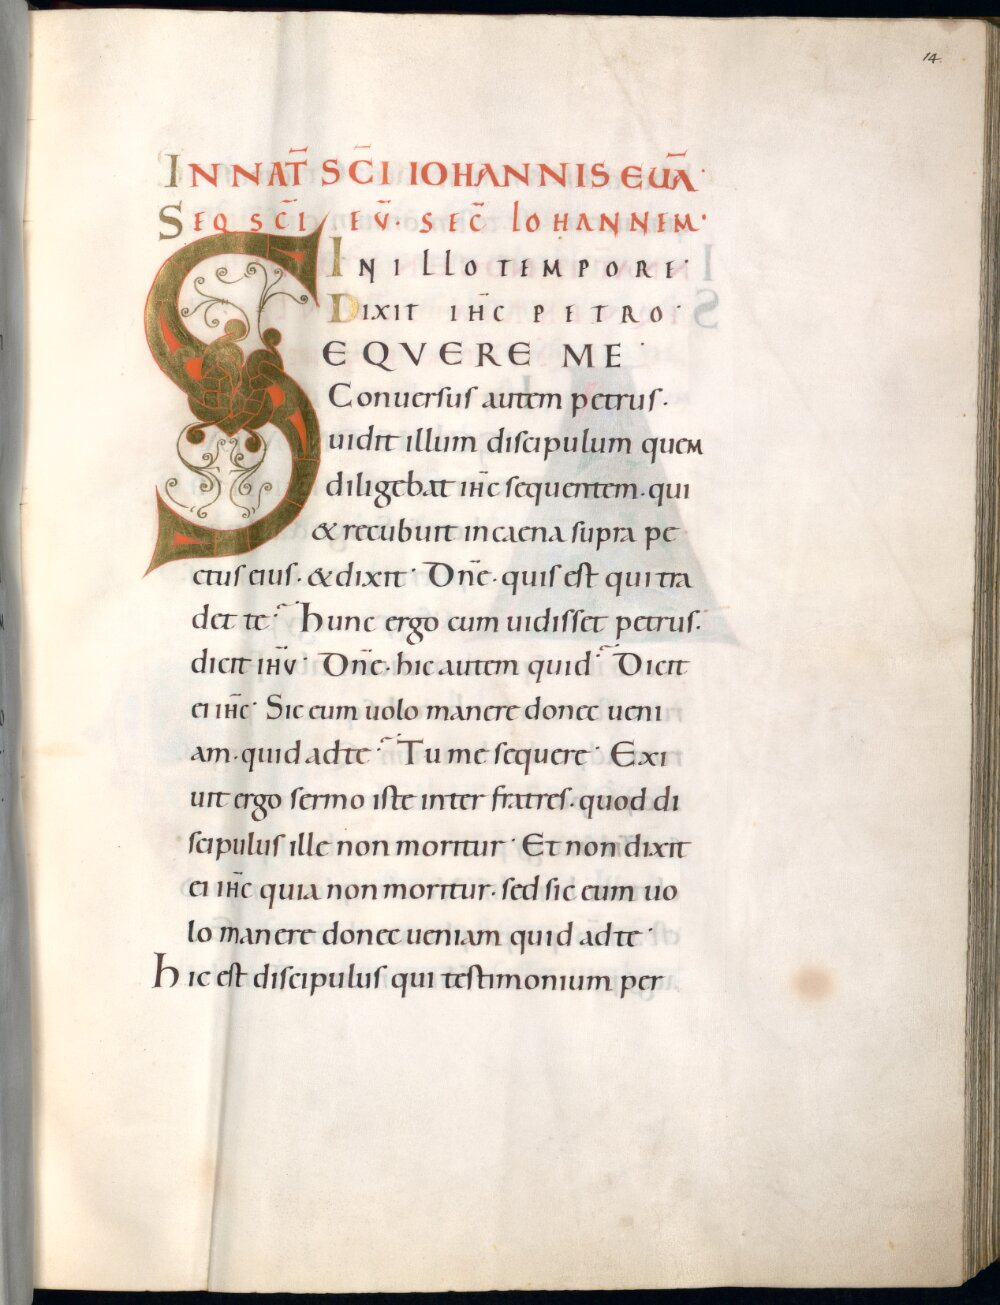 14.
IN NAT̄ SC̄I IOHANNIS EUĀ·
SEQ SC̄I EV̄· SEC̄ IOHANNEM·
IN ILLO TEMPORE·
DIXIT IHC̄ PETRO·
SEQVERE ME·
Conuersus autem petrus·
uidit illum discipulum quem
diligebat ihc̄ sequentem· qui
& recubuit in caena supra pe
ctus eius· & dixit· Dn̄e· quis est qui tra
det te? Hunc ergo cum uidisset petrus·
dicit ihū· Dn̄e· hic autem quid? Dicit
ei ihc̄· Sic eum uolo manere donec ueni
am· quid ad te? Tu me sequere· Exi
uit ergo sermo iste inter fratres· quod di
scipulus ille non moritur· Et non dixit
ei ihc̄ quia non moritur· sed sic eum uo
lo manere donec ueniam quid ad te·
hic est discipulus qui testimonium per